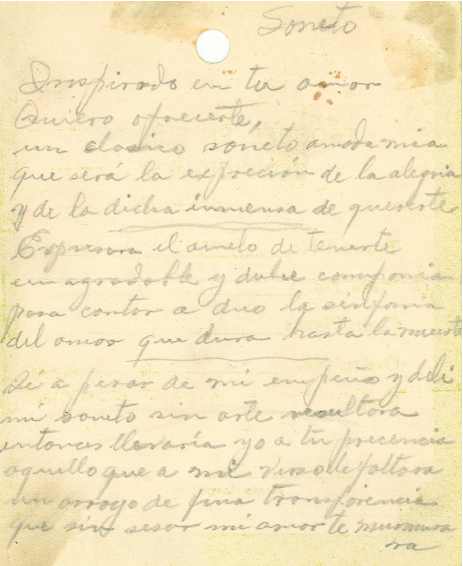 Soneto
Inspirado en tu amor
Quiero ofrecerte,
un clasico soneto a moda mia
que será la expreción de la alegria
y de la dicha inmensa de quererte
Expresara el anelo de tenerte
en agradable y dulce compania
para cantar a duo la sinfonia
del amor que dura hasta la muerte
Si a pesar de mi empeño y deli
mi soneto sin arte resultara
entonces llevaría yo a tu precencia
aquello que a mi verso le faltara
un arroyo de fina transparencia
que sin sesar mi amor te murmura
ra